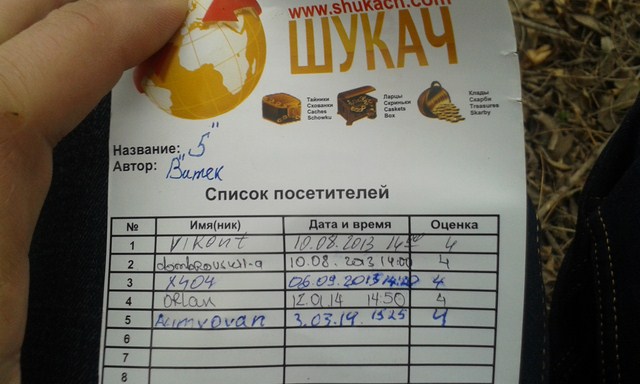 www.shukach.com
ШУКАЧ
Тайники
Схованки
Caches
Schowku
Ларцы
Скриньки
Caskets
Box
Клады
Скарби
Treasures
Skarby
Название: "5"
Автор: "Витек
Список посетителей
№ Имя(ник) Дата и время Оценка
1 Vikont 10.08.2013 14:00 4
2 10.08.2013 14:00 4
3 X404 06.09.2013 14:20 4
4 Orlan 12.01.14 14:50 4
5 3.03.14 13 25 4
6
7
8